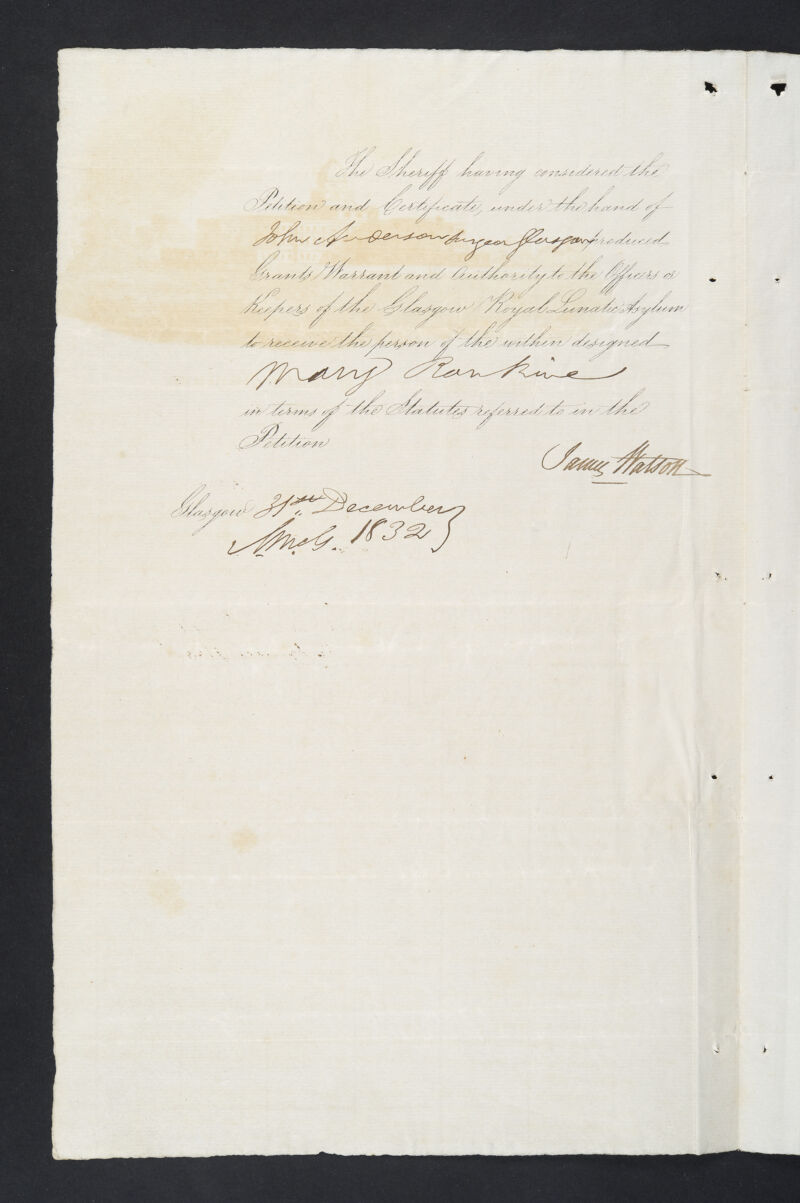 The Sheriff having considered the
Petition and Certificate, under the hand of
John Anderson Surgeon Glasgow produced
Grants Warrant and Authority to the Officers or
Keepers of the Glasgow Royal Lunatic Asylum
to receive the person of the within designed
Mary Rankine
in terms of the Statutes referred to in the
Petition
James Watson
Glasgow 31st December
1832